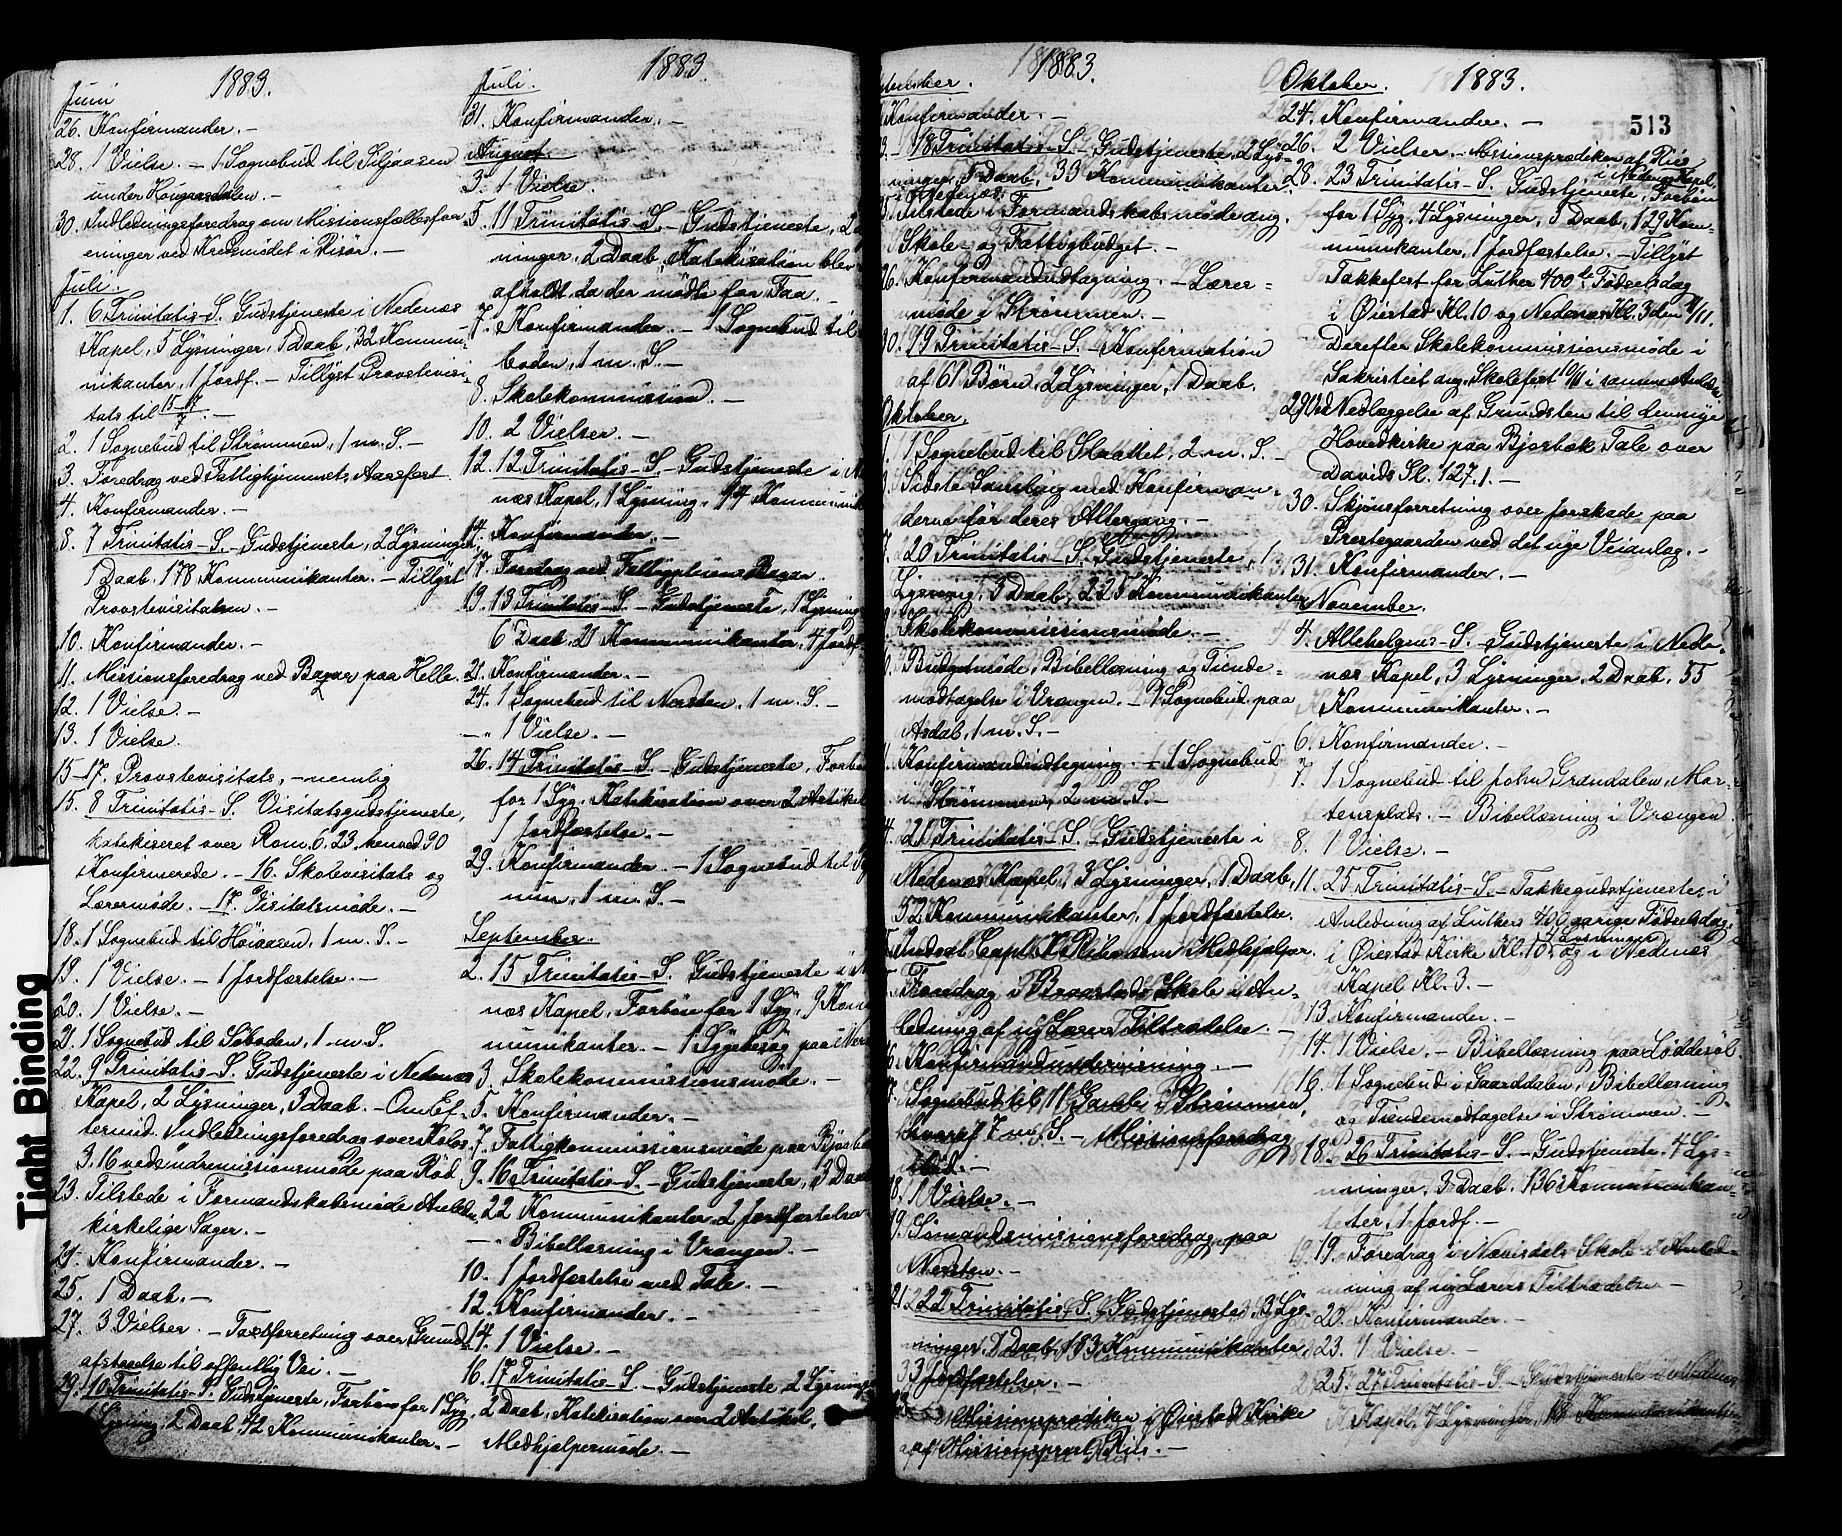 1883.
Juni
26. Konfirmander. –
28. 1 Vielse. – 1 Sognebud til Siljaasen
under Hougaasdalen. –
30. Indledningsforedrag om Missionsfællesfor
eninger ved Kredsmødet i Risør. –
Juli.
1. 6. Trinitatis-S. Gudstjeneste i Nedenæs
Kapel, 5 Lysninger, 1 Daab, 32 Kommu-
nikanter, 1 Jordf. – Tillyst Provstevisi-
tats til 15-17/7. –
2. 1 Sognebud til Strømmen, 1 m. S. –
3. Foredrag ved Fattighjemmets Aarsfest.
4. Konfirmander. –
8. 7 Trinitatis-S. – Gudstjeneste, 2 Lysninger,
1 Daab. 178 Kommunikanter. – Tillyst
Provstevisitatsen. –
10. Konfirmander. –
11. Missionsforedrag ved Bazar paa Helle.
12. 1 Vielse. –
13. 1 Vielse.
15-17. Provstevisitats, – nemlig
15. 8 Trinitatis-S. Visitatsgudstjeneste,
katekiseret over Rom. 6. 23. henved 90
Konfirmerede. – 16. Skolevisitats og
Lærermøde. – 17. Visitatsmøde. –
18. 1 Sognebud til Høiaasen, 1 m. S. –
19. 1 Vielse. – 1 Jordfæstelse. –
20. 1 Vielse. –
21. 1 Sognebud til Søboden, 1 m. S.
22. 9 Trinitatis-S. Gudstjeneste i Nedenæs
Kapel, 2 Lysninger, 1 Daab. – Om Ef-
termid. Indledningsforedrag over Kolos.
3. 16 ved Indremissionsmøde paa Rød.
23. Tilstede i Formandskabsmøde Anledn.
kirkelige Sager. –
24. Konfirmander. –
25. 1 Daab. –
27. 3 Vielser. – Taxtforretning over Grund-
afstaaelse til offentlig Vei. –
29. 10 Trinitatis-S. Gudstjeneste, Forbøn for 1 Syg,
1 Lysning, 2 Daab, 42 Kommunikanter. –
1883.
Juli.
31. Konfirmander. –
August.
3. 1 Vielse.
5. 11 Trinitatis-S. – Gudstjeneste, 2
ninger, 2 Daab, Katekisation blev
afholdt, da der mødte for Faa. –
7. Konfirmander. – 1 Sognebud til
boden, 1 m. S. –
8. Skolekommission. –
10. 2 Vielser. –
12. 12 Trinitatis-S. – Gudstjeneste i
næs Kapel, 1 Lysning, 94 Kommunik
14. Konfirmander. –
17. Foredrag ved Fattighusets Bazar.
19. 13 Trinitatis-S. – Gudstjeneste, 1 Lysning
6 Daab, 21 Kommunikanter, 4 Jordf
21. Konfirmander. –
24. 1 Sognebud til Nersten, 1 m. S. –
– " 1 Vielse. –
26. 14 Trinitatis-S. – Gudstjeneste, Forbøn
for 1 Syg. Katekisation over 2 Artikel
1 Jordfæstelse. –
29. Konfirmander. – 1 Sognebud til
num, 1 m. S. –
September.
2. 15 Trinitatis-S. Gudstjeneste i
næs Kapel, Forbøn for 1 Syg, 9 Kom
munikanter. – 1 Sygebesøg paa
3. Skolekommissionsmøde. –
5. Konfirmander. –
7. Fattigkommissionsmøde paa
9. 16 Trinitatis-S. – Gudstjeneste, 3 Daab
22 Kommunikanter. 2 Jordfæstelser
– " Bibellæsning i Vrængen. –
10. 1 Jordfæstelse med Tale. –
12. Konfirmander. –
14. 1 Vielse. –
16. 17 Trinitatis-S. – Gudstjeneste, 2 Lysninger
2 Daab, Katekisation over 2 Artikel,
Medhjælpermøde. –
1883.
Konfirmander. –
18 Trinitatis-S. – Gudstjeneste, 2 Lys-
ninger, 5 Daab, 33 Kommunikanter.
Tilstede i Formandskabsmøde ang.
Skole- og Fattigbudget. –
26. Konfirmandudtagning. – Lærer-
møde i Strømmen. –
30. 19 Trinitatis-S. – Konfirmation
af 61 Børn, 2 Lysninger, 1 Daab.
Oktober.
1 Sognebud til Slaattet, 2 m. S. –
Sidste Samling med Konfirman-
derne før deres Altergang. –
7. 20 Trinitatis-S. Gudstjeneste, 1
Lysning, 3 Daab, 225 Kommunikanter
Skolekommissionsmøde. –
Budgetmøde, Bibellæsning og Tiende-
modtagelse i Vrængen. – 1 Sognebud paa
Asdal, 1 m. S. –
Konfirmandudtagning. – 1 Sognebud
i Strømmen, 2 m. S. –
21 Trinitatis-S. – Gudstjeneste i
Nedenæs Kapel, 3 Lysninger, 1 Daab,
52 Kommunikanter, 1 Jordfæstelse.
Indsat Capt. som Medhjælper.
Foredrag i Braastad Skole i An-
ledning af ny Lærers Tiltrædelse. –
16. Konfirmandundervisning. –
Sognebud til 11 Gamle i Strømmen,
hvoraf 7 m. S. – Missionsforedrag
Rød. –
18. 1 Vielse. –
19. Sømandsmissionsforedrag paa
Nersten. –
21. 22 Trinitatis-S. – Gudstjeneste, 3 Lys-
ninger, 1 Daab, 183 Kommunikanter
3 Jordfæstelser. –
Missionsprædiken i Øiestad Kirke
af Missionsprest Riis. –
Oktober. 1883.
513
24. Konfirmander. –
26. 2 Vielser. – Missionsprædiken af Riis
i Nedenæs Kapel.
28. 23 Trinitatis-S. Gudstjeneste, Forbøn
for 1 Syg, 4 Lysninger, 5 Daab, 129 Kom-
munikanter, 1 Jordfæstelse. – Tillyst
Takkefest for Luther 400de Fødselsdag
i Øiestad Kl. 10 og Nedenæs Kl. 3 den 11/11.
Derefter Skolekommissionsmøde i
Sakristiet ang. Skolefest 10/11 i samme Anledn.
29. Ved Nedlæggelse af Grundsten til den nye
Hovedkirke paa Bjorbæk Tale over
Davids Sl. 127. 1. –
30. Skjønsforretning over Jordskade paa
Prestegaarden ved det nye Veianlæg. –
31. Konfirmander. –
November.
4. Allehelgens-S. – Gudstjeneste i Nede-
næs Kapel, 3 Lysninger, 2 Daab, 55
Kommunikanter. –
6. Konfirmander. –
7. 1 Sognebud til John Grændalen, Mor-
tensplads. – Bibellæsning i Vrængen.
8. 1 Vielse. –
11. 25 Trinitatis-S. – Takkegudstjeneste i
Anledning af Luthers 400 aarige Fødselsdag,
7 Lysninger
i Øiestad Kirke Kl. 10 og i Nedenæs
Kapel Kl. 3. –
13. Konfirmander. –
14. 1 Vielse. – Bibellæsning paa Løddesøl.
16. 1 Sognebud i Gaarddalen, Bibellæsning
og Tiendemodtagelse i Strømmen. –
18. 26 Trinitatis-S. – Gudstjeneste. 4 Lys-
ninger, 3 Daab, 136 Kommunikan-
ter, 1 Jordf. –
19. Foredrag i Nævisdals Skole i Anled-
ning af ny Lærers Tiltrædelse –
20. Konfirmander. –
23. 1 Vielse. –
25. 27 Trinitatis-S. – Gudstjeneste i Nedenæs
Kapel, 4 Lysninger, 18 Kommunikanter.
Tight Binding